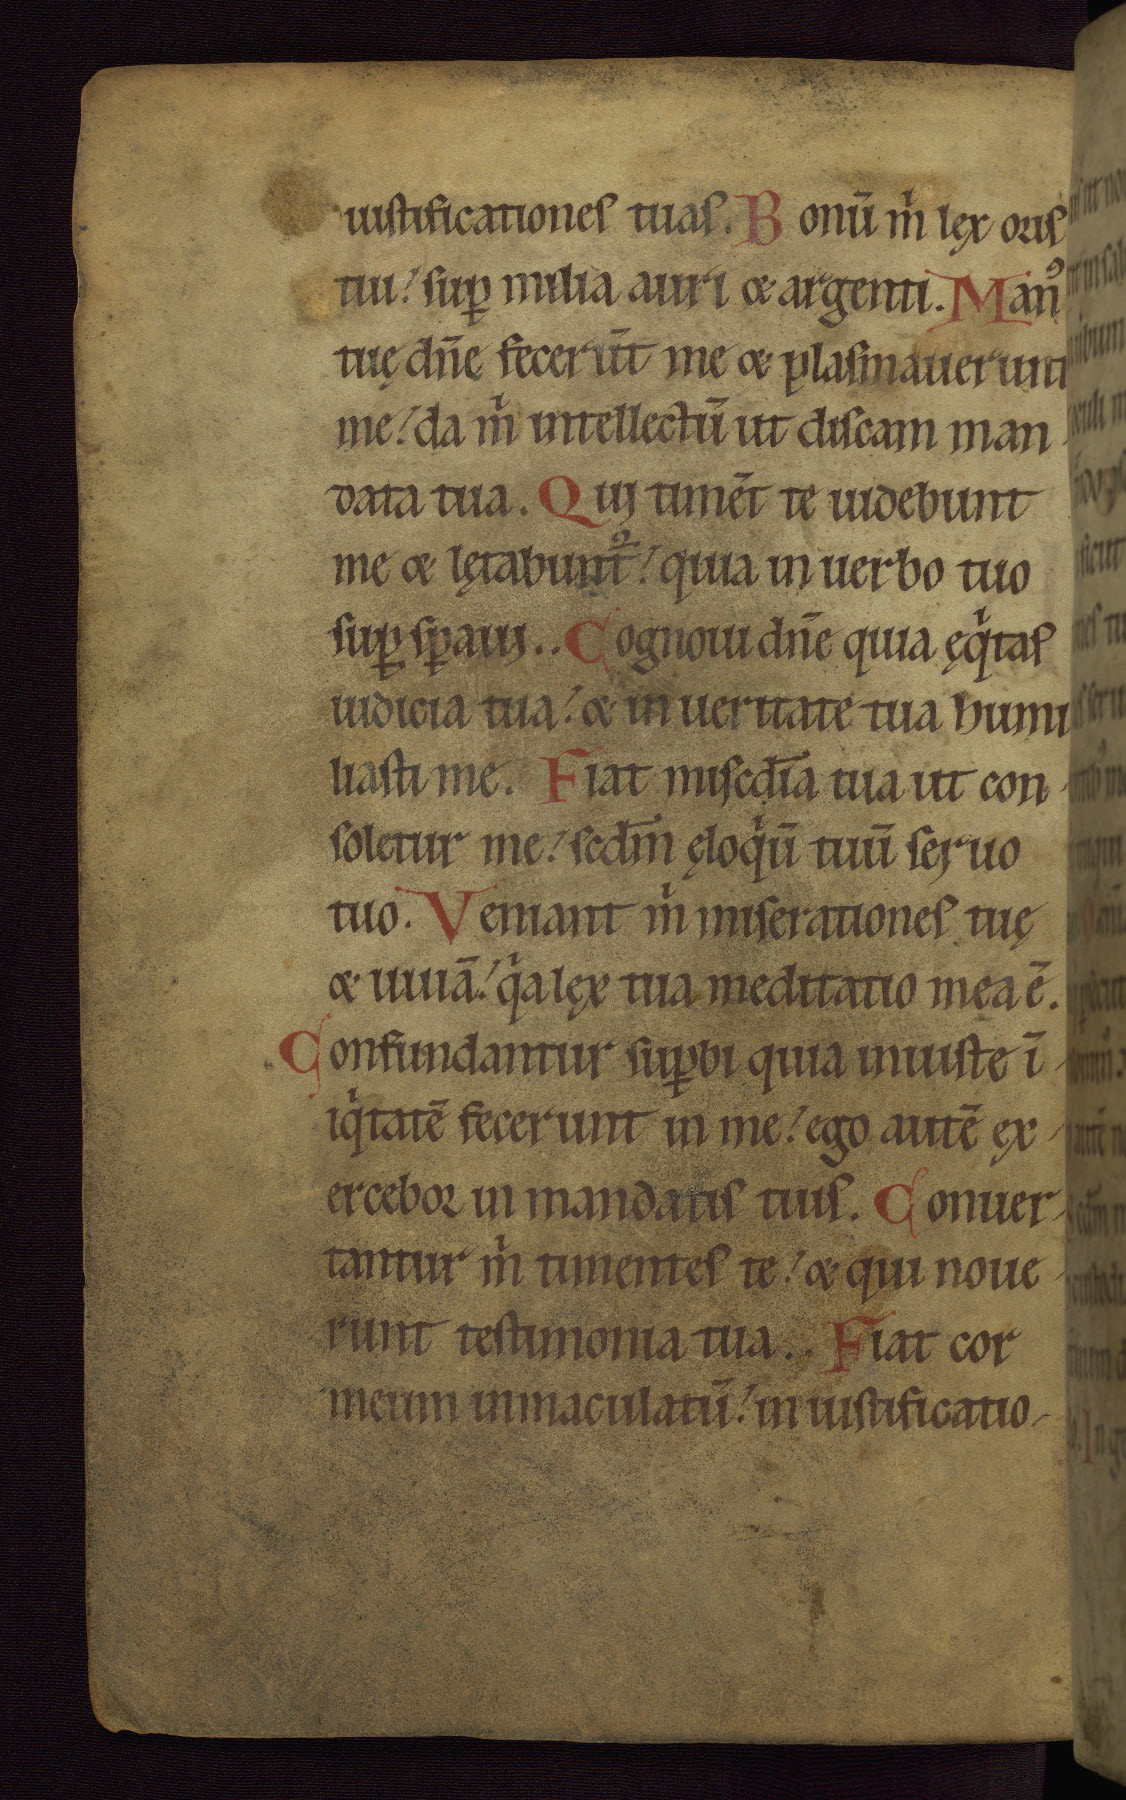 iustificationes tuas. Bonū m̉ lex oris
tui! suꝑ milia auri & argenti. Manꝰ
tuę dn̄e fecerūt me & plasmauerunt
me! da m̉ intellectū ut discam man
data tua. Qui timēt te uidebunt
me & lętabunt᷑! quia in uerbo tuo
suꝑ sꝑaui.. Cognoui dn̄e quia ęqͥtas
iudicia tua! & in ueritate tua humi
liasti me. Fiat misc̄dia tua ut con-
soletur me! scd̄m ęloqͥū tuū seruo
tuo. Veniant m̉ miserationes tuę
& uiuā! qͥa lex tua meditatio mea ē.
Confundantur suꝑbi quia iniuste ī-
iqͥtatē fecerunt in me! ego autē ex-
ercebor in mandatis tuis. Conuer-
tantur m̉ timentes te! & qui noue-
runt testimonia tua.. Fiat cor
meum inmaculatū! in iustificatio-